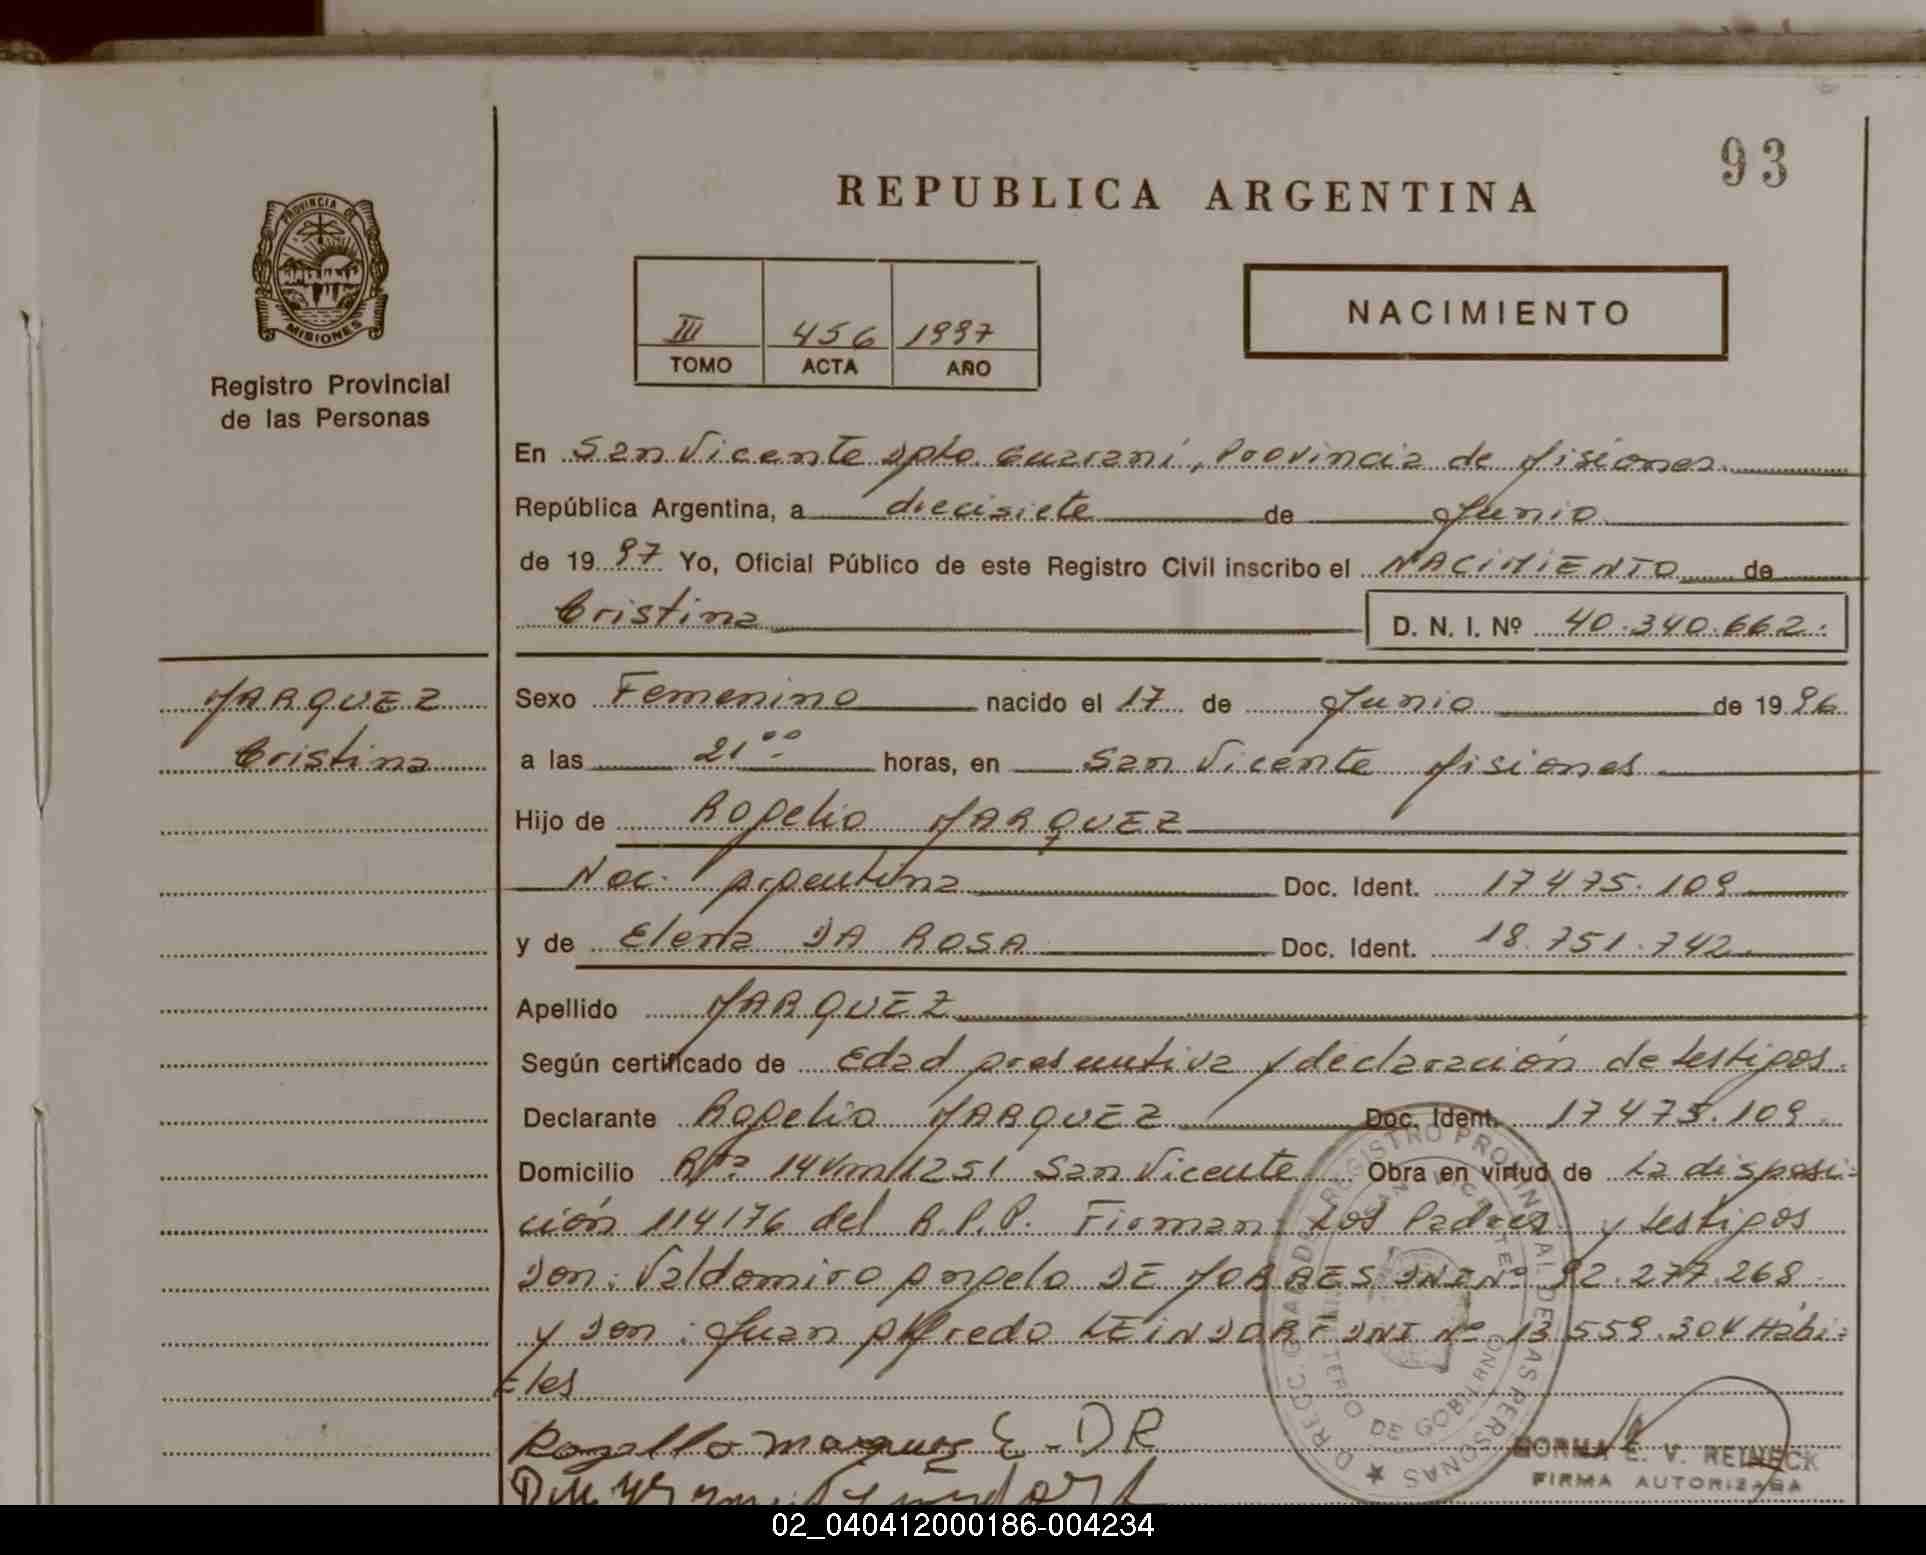 93
REPUBLICA ARGENTINA
PROVINCIA DE
MISIONES
Registro Provincial
de las Personas
III 456 1997
TOMO ACTA AÑO
NACIMIENTO
En San Vicente Dpto. Guaraní, Provincia de Misiones
República Argentina, a diecisiete de Junio
de 19 97 Yo, Oficial Público de este Registro Civil inscribo el NACIMIENTO de
Cristina D. N. I. Nº 40.340.662.
MARQUEZ
Cristina
Sexo Femenino nacido el 17 de Junio de 19 96
a las 21 00 horas, en San Vicente Misiones
Hijo de Rogelio MARQUEZ
Nac. Argentina Doc. Ident. 17475.109
y de Elena DA ROSA Doc. Ident. 18.751.742
Apellido MARQUEZ
Según certificado de Edad presuntiva y declaración de testigos.
Declarante Rogelio MARQUEZ Doc. Ident. 17475.109.
Domicilio Rta 14 Km 1251 San Vicente Obra en virtud de La disposi-
ción 114176 del R.P.P. Firman: Los Padres y testigos
Don: Valdomiro Angelo DE MORAES DNI Nº 92.277.268
y Don: Juan Alfredo LEINDORF DNI Nº 13.559.304 Hábi-
les
E. DR
NORMA E. V. REINECK
FIRMA AUTORIZADA
02_040412000186-004234